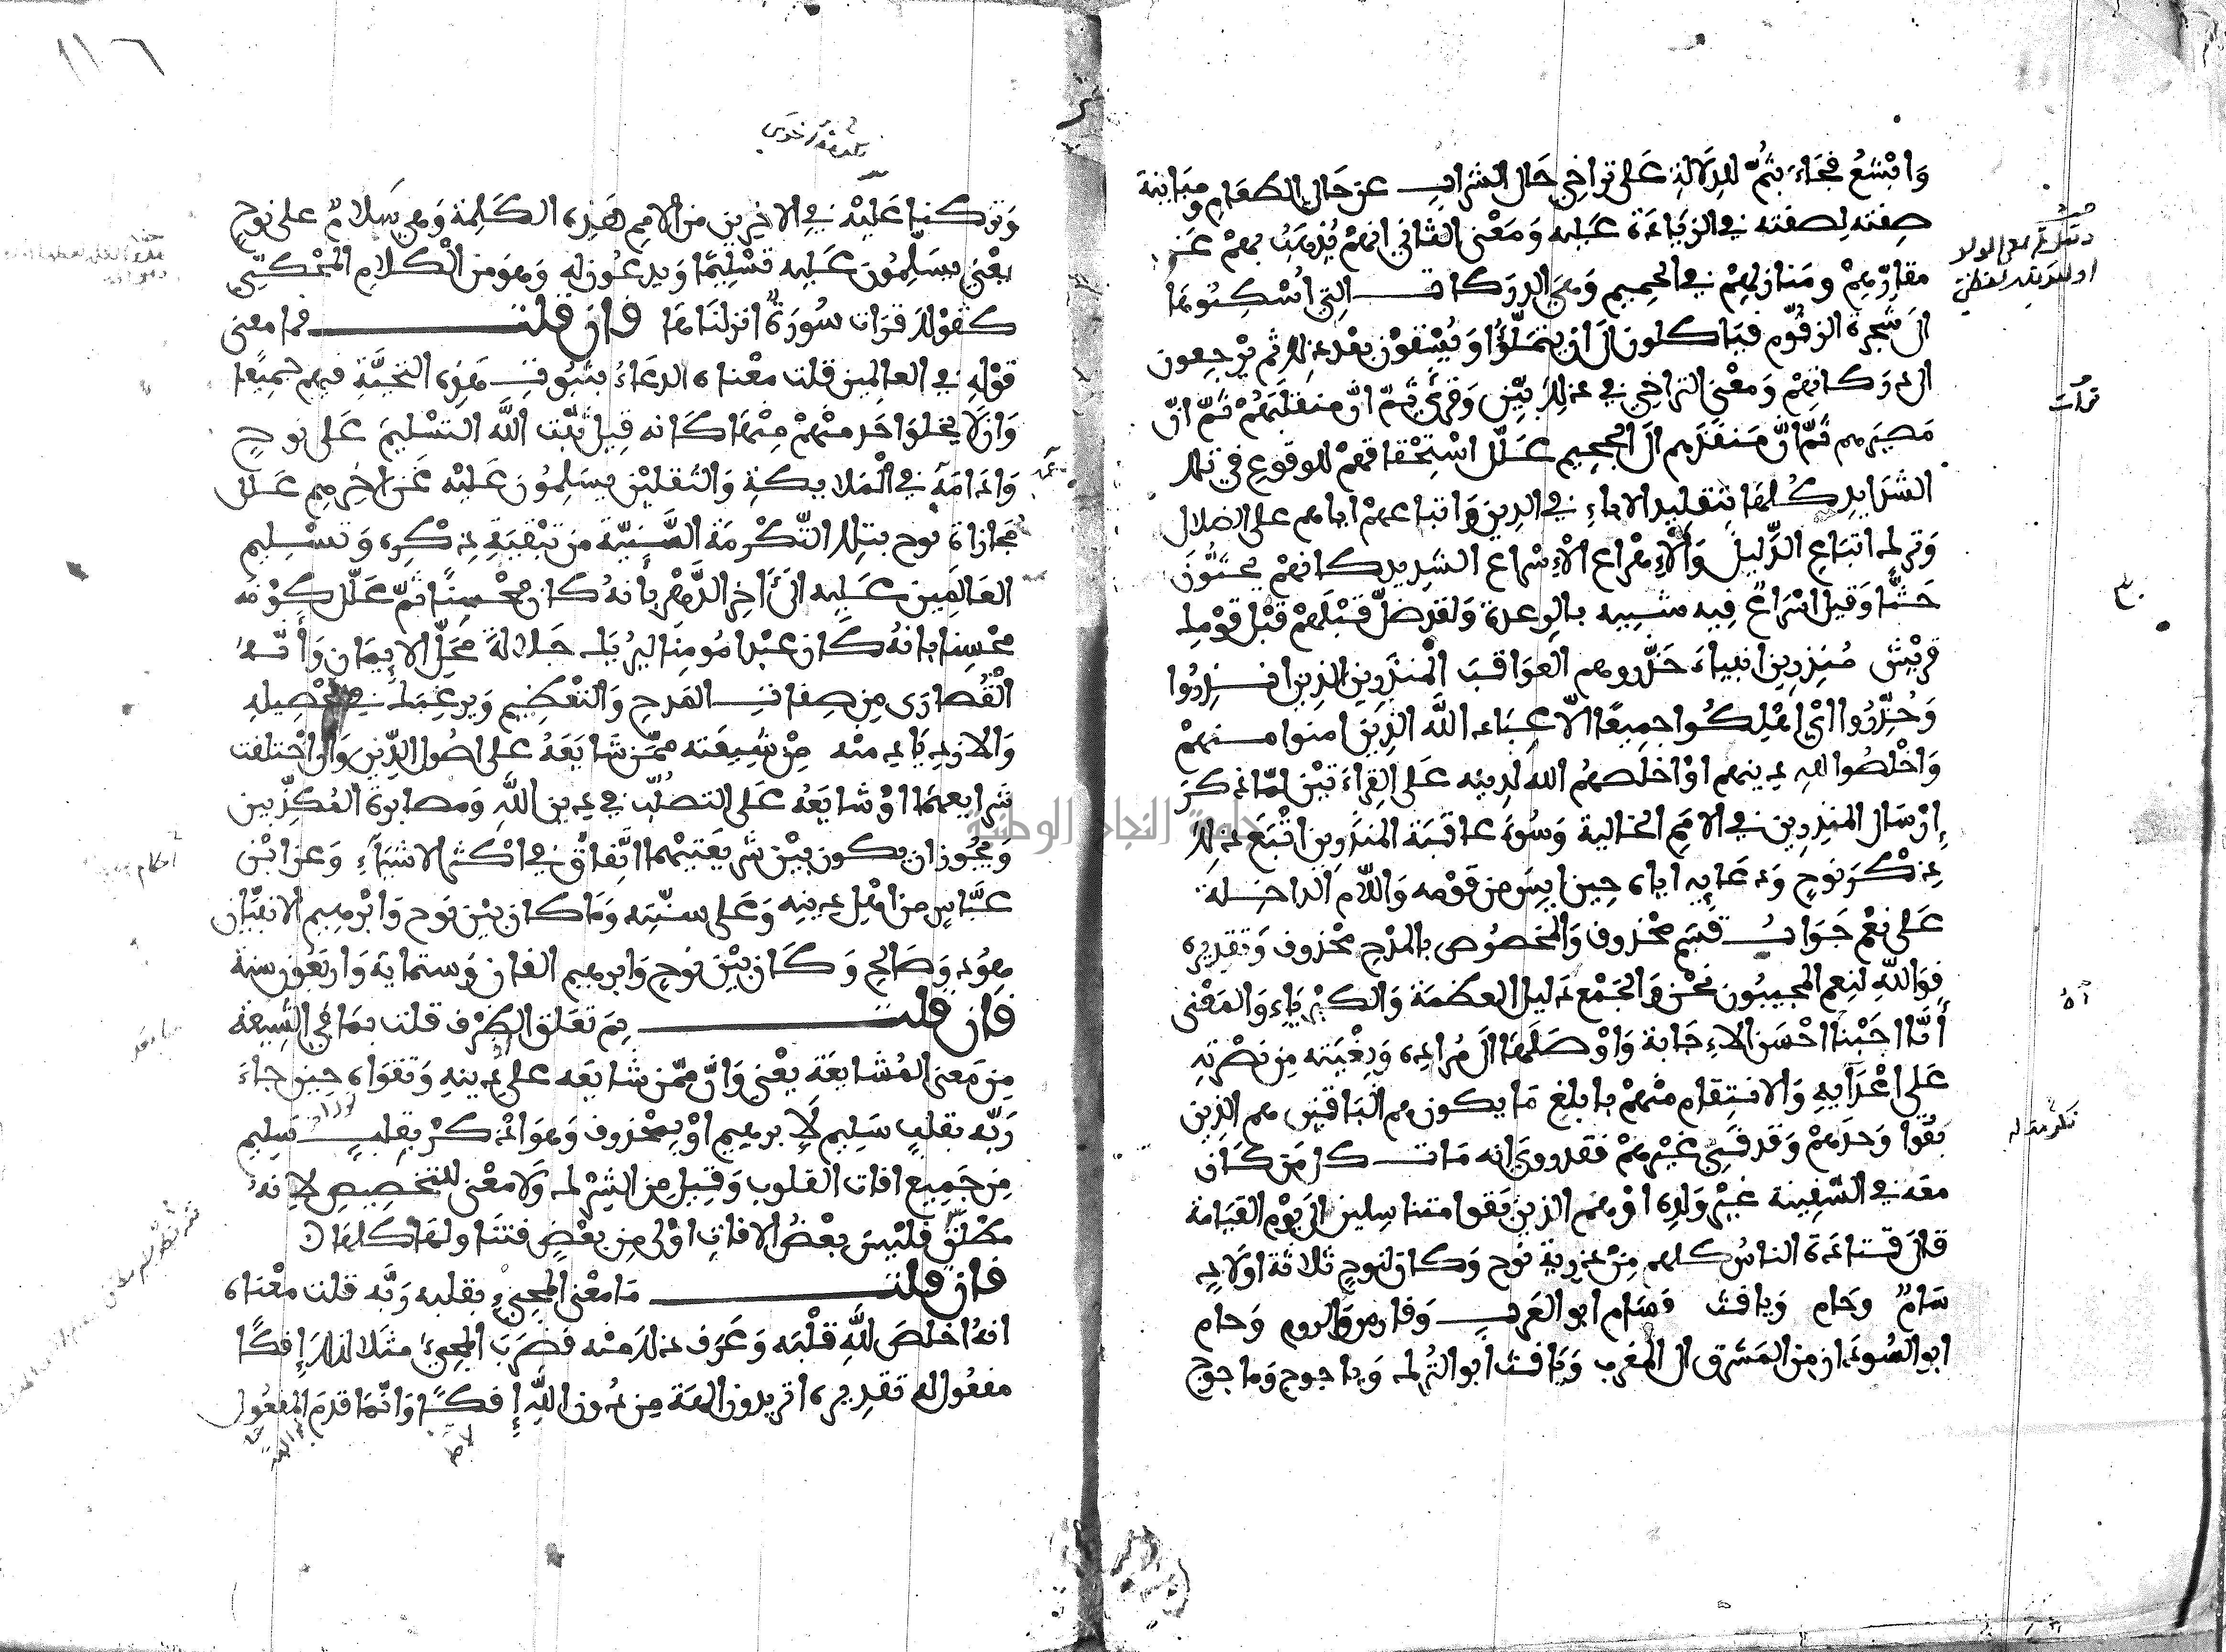 وَابْشعُ فجَاءَ بثُمَّ للدِلَالَةِ عَلى تراخِي حَال الشراب عن حَال الطعَام ومبَاينة
صِفته لِصفَته في الزيَادَة عَليه وَمَعْنى الثاني انهمْ يُذهَبُ بهمْ عَن
مقارِّهِمْ ومَنازلهِمْ في الجحِيم وَهِي الدرَكات التي اُسْكِنُوهَا
الَى شجرة الزقُوم فيَاكلون الَى ان يتمَلَّؤُا وَيُسْقَوْن بعْد ذلك ثم يَرْجعون
الى درَكاتِهمْ وَمعْنى التراخِي في ذلك بَيّن وَقرئ ثمّ انّ منقلبَهُمْ ثمّ انّ
مَصِيرَهم ثمّ انّ مَنفَذَهم الى الجَحِيم عَلّل اسْتِحْقاقهمْ للوقوع في تلك
الشدَايدِ كُلهَا بتقليد الاباءِ في الدِين وَاتباعهمْ اياهم على الضلال
وَترك اتبَاع الدَّليل وَالْاِهْرَاع الْاِسْرَاع الشدِيد كانهمْ يحثّونَ
حَثًّا وَقيل اسْرَاعٌ فِيه شبيه بالرِعدة وَلقد ضلّ قبْلهمْ قبْل قوْمك
قريْش مُنذِرِين انبياءَ حَذّروهم العوَاقبَ الْمنذَرِين الذِين انذِرُوا
وَحُذِّرُوا ايْ اهْلِكُوا جمِيعًا الّا عبَاد الله الذِين امنوا منهمْ
وَاخْلصُوا لله دينهم اوْ اخْلصَهمُ الله لدِينه عَلى القِراءَتيْن لمّا ذكرَ
اِرْسَال المنذِرِين في الامَم الخالية وَسُوءَ عاقبَة المنذَرِين اتْبَعَ ذلك
ذكْرَ نوُحٍ وَدعَايه اياه حِين ايسَ من قوْمه وَاللّام الداخِلة
عَلى نعْم جَوَاب قسَم محْذوف وَالمخصُوص بالمدْحِ محْذوف وَتقديره
فوَاللهِ لنِعم المجيبُون نحْن وَالجَمْع دَليل العظمَة وَالكبْريَاءِ وَالمَعْنى
أنّا اجَبْناه احْسَن الاجَابة وَاوْصَلَهَا الَى مُرادِه وَبغْيَته مِن نصْرته
عَلى اعْدَآيهِ وَالانتِقام منْهمْ بابلغ مَا يكون هم البَاقين هم الذِين
بقوا وَحدَهمْ وَقد فَنِيَ غيْرهمْ فقد رُوِيَ انه مَات كل مَن كَان
معَه في السّفِينة غيْر وَلدِه اوْ همُ الذين بَقوا متناسِلين الى يَوْم القيَامة
قال قتادَة الناسُ كلهم مِنْ ذرية نوح وَكان لنوحٍ ثلاثة اوْلادٍ
سَامٌ وحَام وَيافث فسَام ابو العَرب وَفارس وَالروم وَحام
ابو السُودَان مِن المَشرق الى المغرب وَيَافث ابو التُرك وَيَاجوج وَماجوج
قرات
١١٦
وَتركنا عَليْه في الاخِرين من الامم هَذِه الكَلِمة وَهي سَلامٌ على نوحٍ
يعْني يسَلّمُون عَليه تسْليمًا وَيدعُون له وَهوَ من الْكَلَام المحْكيّ
كقوْلك قرَات سُورَةٌ انزلنَاهَا فان قلت فما معنى
قوْلهِ في العالمين قلت معْناه الدعَاءُ بثبُوت هَذِه التحيَّة فيهم جميْعًا
وَان لَا يخلوَ احَد منْهمْ مِنْهَا كَانه قِيل ثبّت اللَّه التسْليمَ عَلى نوحٍ
وَادَامَهُ في الْمَلايكةِ وَالثقليْن يسَلِمُون عَليْه عَن اخِرهِم عَلل
مجَازاة نوح بتِلك التّكْرمَة السَّنيّة مَن تبْقيَةِ ذكْرِه وَتسْليم
العَالَمِين عَليه الىَ آخِر الدَّهْر بأنهُ كان محْسِنًا ثمّ عَلّل كوْنهُ
محْسِنا بانهُ كَان عبْدا مُومِنا ليُريَك جَلالة محَلّ الايمَان وَأنّهُ
الْقُصَارَى مِن صِفات المَدحِ وَالتعْظيم وَيرغبَك في تحْصِيله
وَالازدِيَادِ منه مِنْ شِيعَته ممّن شَايَعَهُ على اصُول الدِّين وَان اخْتلفت
شرَايعهمَا اوْ شَايَعَهُ عَلى التصَلّب في دِين اللهِ وَمصَابرة المُكذّبين
وَيجُوز ان يكون بيْن شريعَتيْهمَا اتَّفاقٌ في اكْثر الاشيَآءِ وَعن ابْن
عبَّاسٍ من اهْلِ دِينِه وَعَلى سنّته وَمَا كان بيْن نوح وَابْرهِيم الا نبيّان
هوُد وَصَالح وَكَان بيْن نوُحٍ وَابرهيم الفان وَستمَاية وَاربَعُون سنة
فان قلت بمَ تعَلق الظرْف قلت بمَا في الشِيعَة
مِن مَعنى المُشَايعَة يعْني وَانّ ممّن شَايَعَه على دِينِه وَتقوَاه حِين جاءَ
رَبّه بقلبٍ سَليم لَاِبرهِيم اوْ بمحْذوف وَهوَ اذكرْ بقلبٍ سَلِيم
مِن جَمِيع افات القلوب وَقيل مِن الشِرْك وَلا معْنى للتخصِيصِ لانهُ
مطْلقٌ فليْسَ بعْضُ الافاتِ اوْلى مِن بعْضٍ فتتَناولهَا كلهَا
فان قلت مَا معْنى المجِيءِ بقلبه رَبَّه قلت معْناه
انهُ اخْلصَ للهِ قلْبَه وَعَرَف ذلك مِنْه فضَرَبَ المجيءَ مثَلا لذلك اِفكًا
مفعُول له تقدِيره اتريدون الهة مِن دُون اللهِ اِفكًا وَانّمَا قدمَ المفعُول
جامعة النجاح الوطنية